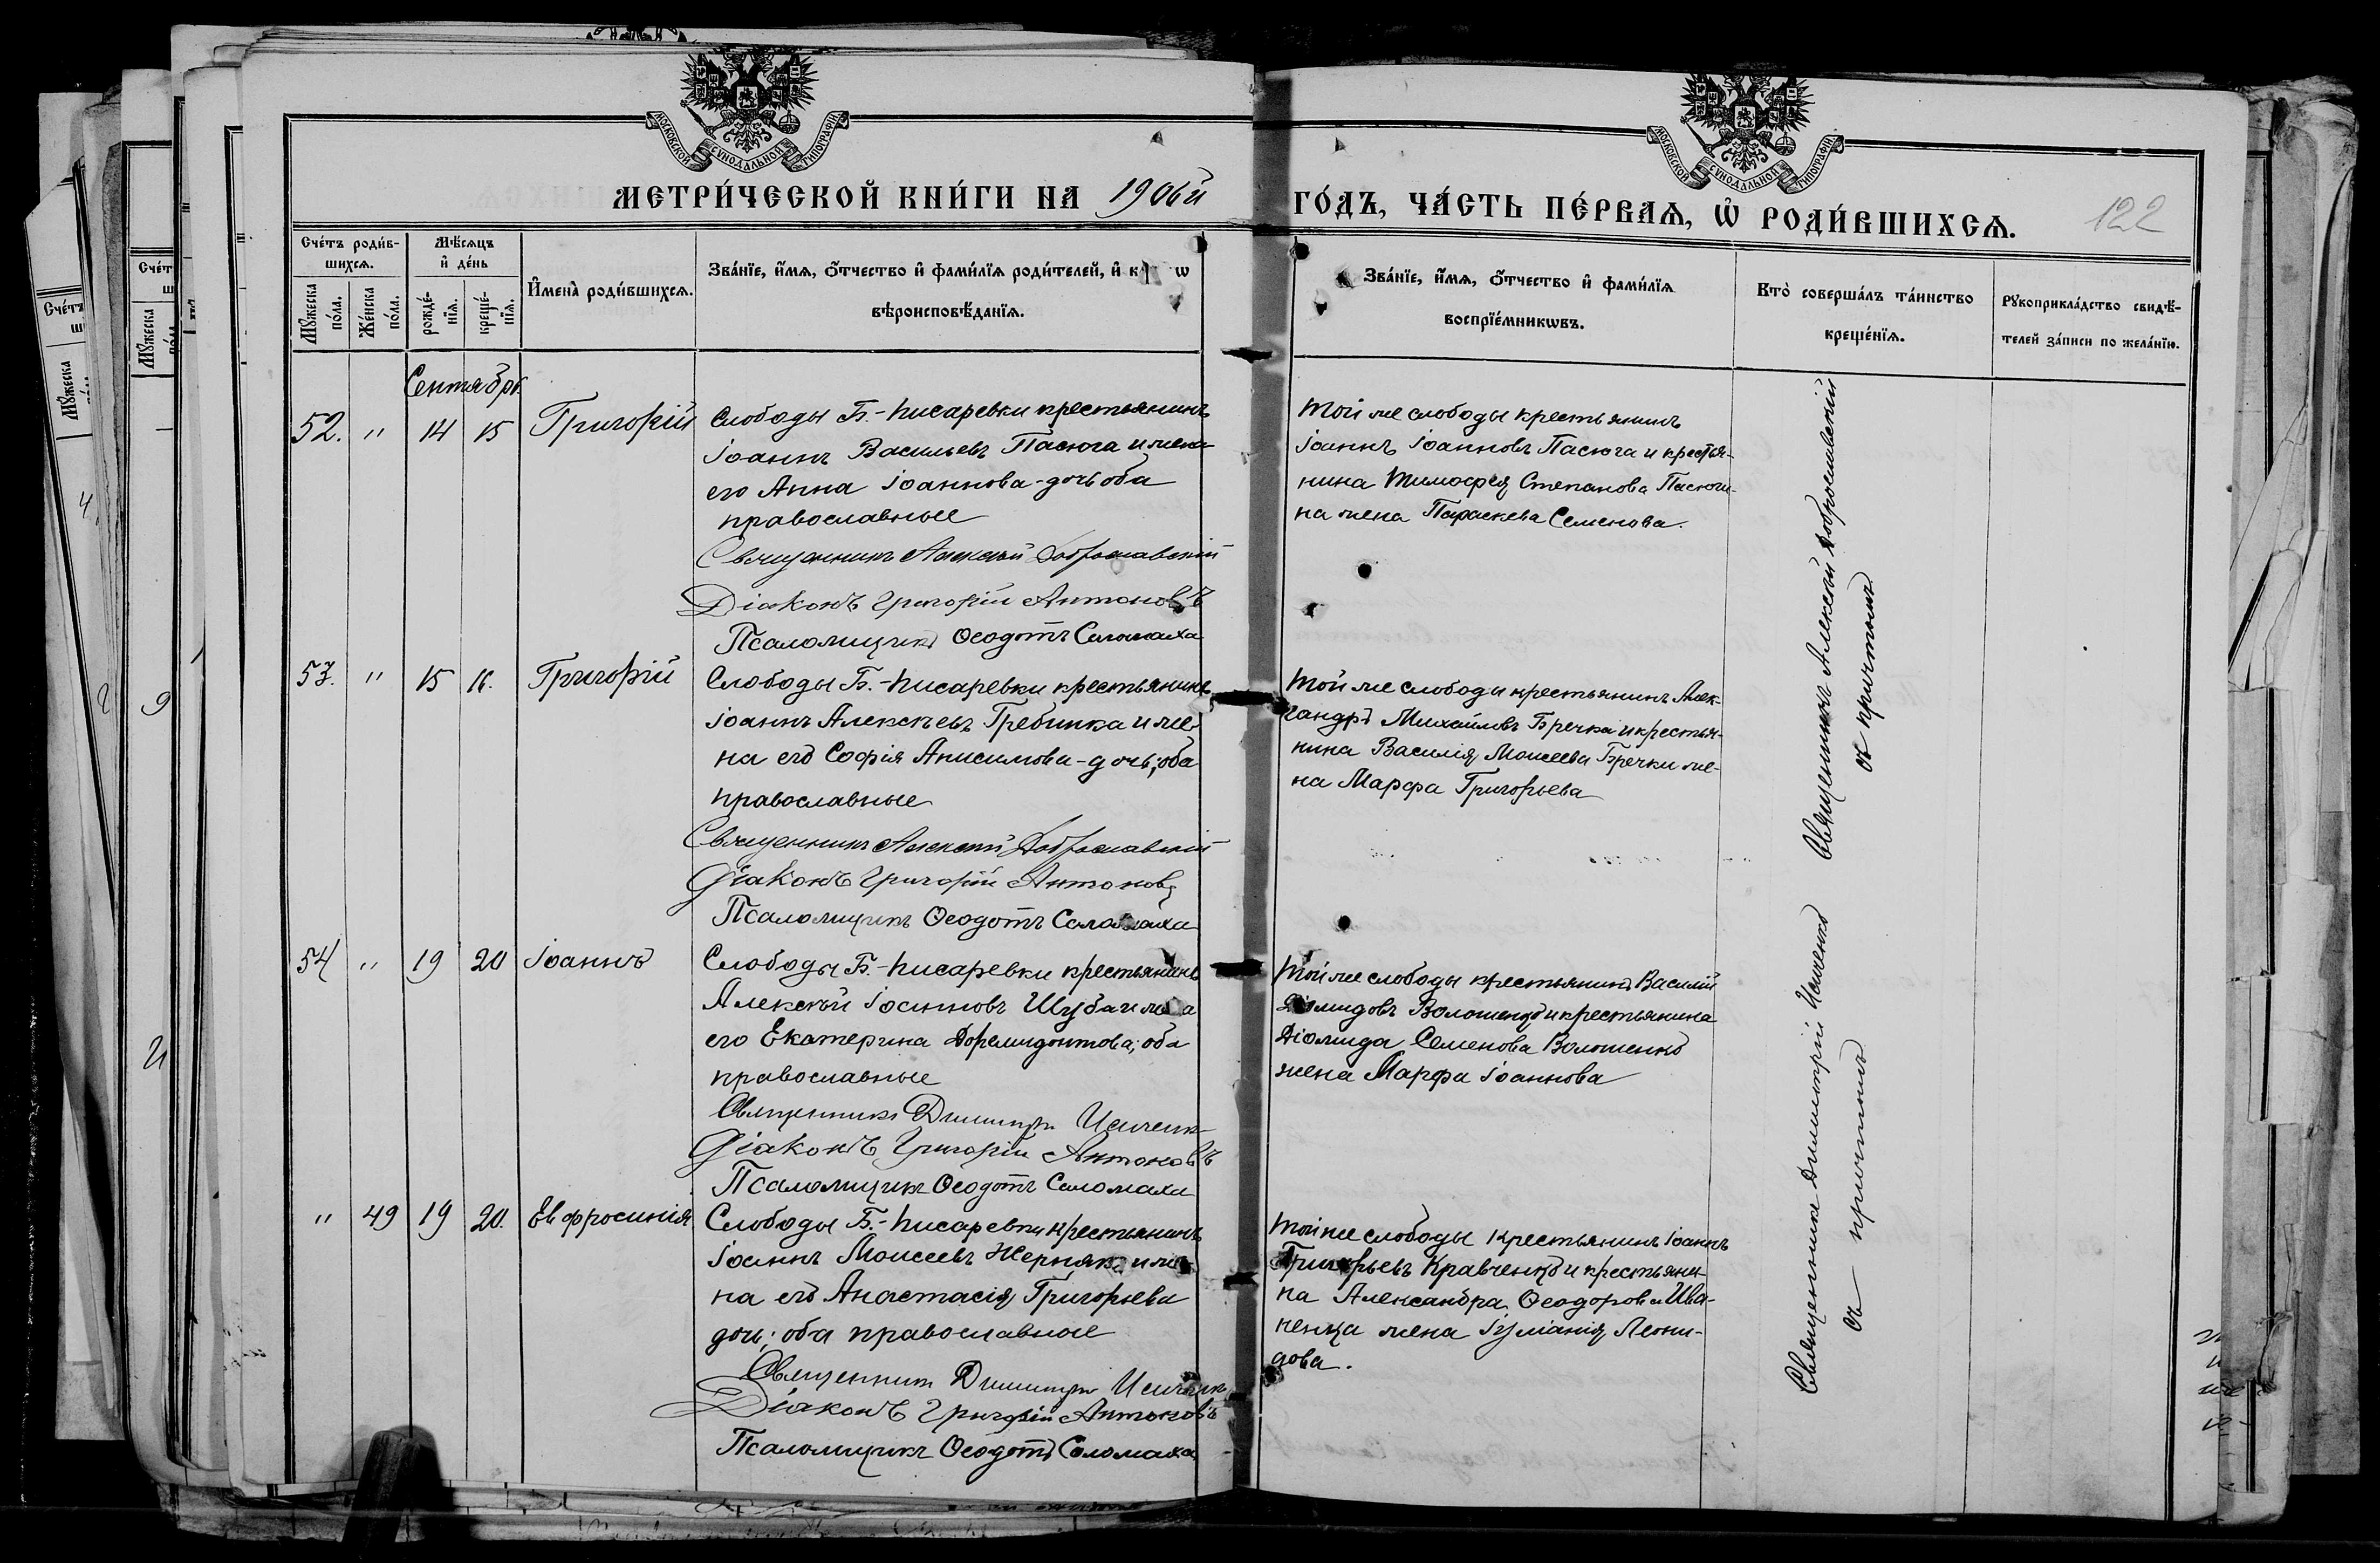 МОСКОВСКОЙ СѴНОДАЛЬНОЙ ТИПОГРАФІИ
МОСКОВСКОЙ СѴНОДАЛЬНОЙ ТИПОГРАФІИ
МЕТРИ́ЧЕСКОЙ КНИ́ГИ НА 1906й
ГО́ДЪ, ЧА́СТЬ ПЕ́РВАѦ, Ѡ҆ РОДИ́ВШИХСѦ.
122
Сче́тъ роди́в-
шихсѧ.
Мꙋ́жеска
по́ла.
Же́нска
по́ла.
Мѣ́сѧцъ
и҆ де́нь
рожде́-
нїѧ.
креще́-
нїѧ.
И҆мена̀ роди́вшихсѧ.
Зва́нїе, и҆́мѧ, ѻ҆́тчество и҆ фами́лїѧ роди́телей, и҆ к
вѣроисповѣ́данїѧ.
Зва́нїе, и҆́мѧ, ѻ҆́тчество и҆ фами́лїѧ
воспрїе́мникѡвъ.
Кто̀ соверша́лъ та́инство
креще́нїѧ.
Рꙋкоприкла́дство свидѣ́-
телей за́писи по жела́нїю.
Сентябрь
52. " 14 15 Григорій
Слободы Б.-Писаревки крестьянинъ
Іоаннъ Васильевъ Пасюга и жена
его Анна Іоаннова-дочь оба
православные
Священникъ Алексѣй Доброславскій
Діаконъ Григорій Антоновъ
Псаломщикъ Ѳеодотъ Соломаха
Той же слободы крестьянинъ
Іоаннъ Іоанновъ Пасюга и крестья-
нина Тимофея Степанова Пасюги-
на жена Параскева Семенова.
53. " 15 16. Григорій
Слободы Б.-Писаревки крестьянинъ
Іоаннъ Алексѣевъ Гребинка и же-
на его Софія Анисимова-дочь; оба
православные
Священникъ Алексѣй Доброславскій
Діаконъ Григорій Антоновъ
Псаломщикъ Ѳеодотъ Соломаха
Той же слободы крестьянинъ Алек-
сандръ Михайловъ Бречка и крестья-
нина Василія Моисеева Бречки же-
на Марфа Григорьева
Священникъ Алексѣй Доброславскій
съ причтомъ
54 " 19 20 Іоаннъ
Слободы Б.-Писаревки крестьянинъ
Алексѣй Іоанновъ Шуба и жена
его Екатерина Доремидонтова; оба
православные
Священникъ Димитрій
Діаконъ Григорій Антоновъ
Псаломщикъ Ѳеодотъ Соломаха
Той же слободы крестьянинъ Василій
Діомидовъ Волошенко и крестьянина
Діомида Семенова Волошенко
жена Марфа Іоаннова
" 49 19 20. Евфросинія
Слободы Б.-Писаревки крестьянинъ
Іоаннъ Моисеевъ Жерняк и же-
на его Анастасія Григорьева
дочь; оба православные
Священникъ Димитрій
Діаконъ Григорій Антоновъ
Псаломщикъ Ѳеодотъ Соломаха
Той же слободы крестьянинъ Іоаннъ
Григорьевъ Кравченко и крестьяни-
на Александра Ѳеодорова Ива-
ненка жена Іуліанія Леони-
дова.
Священникъ Димитрій
съ причтомъ